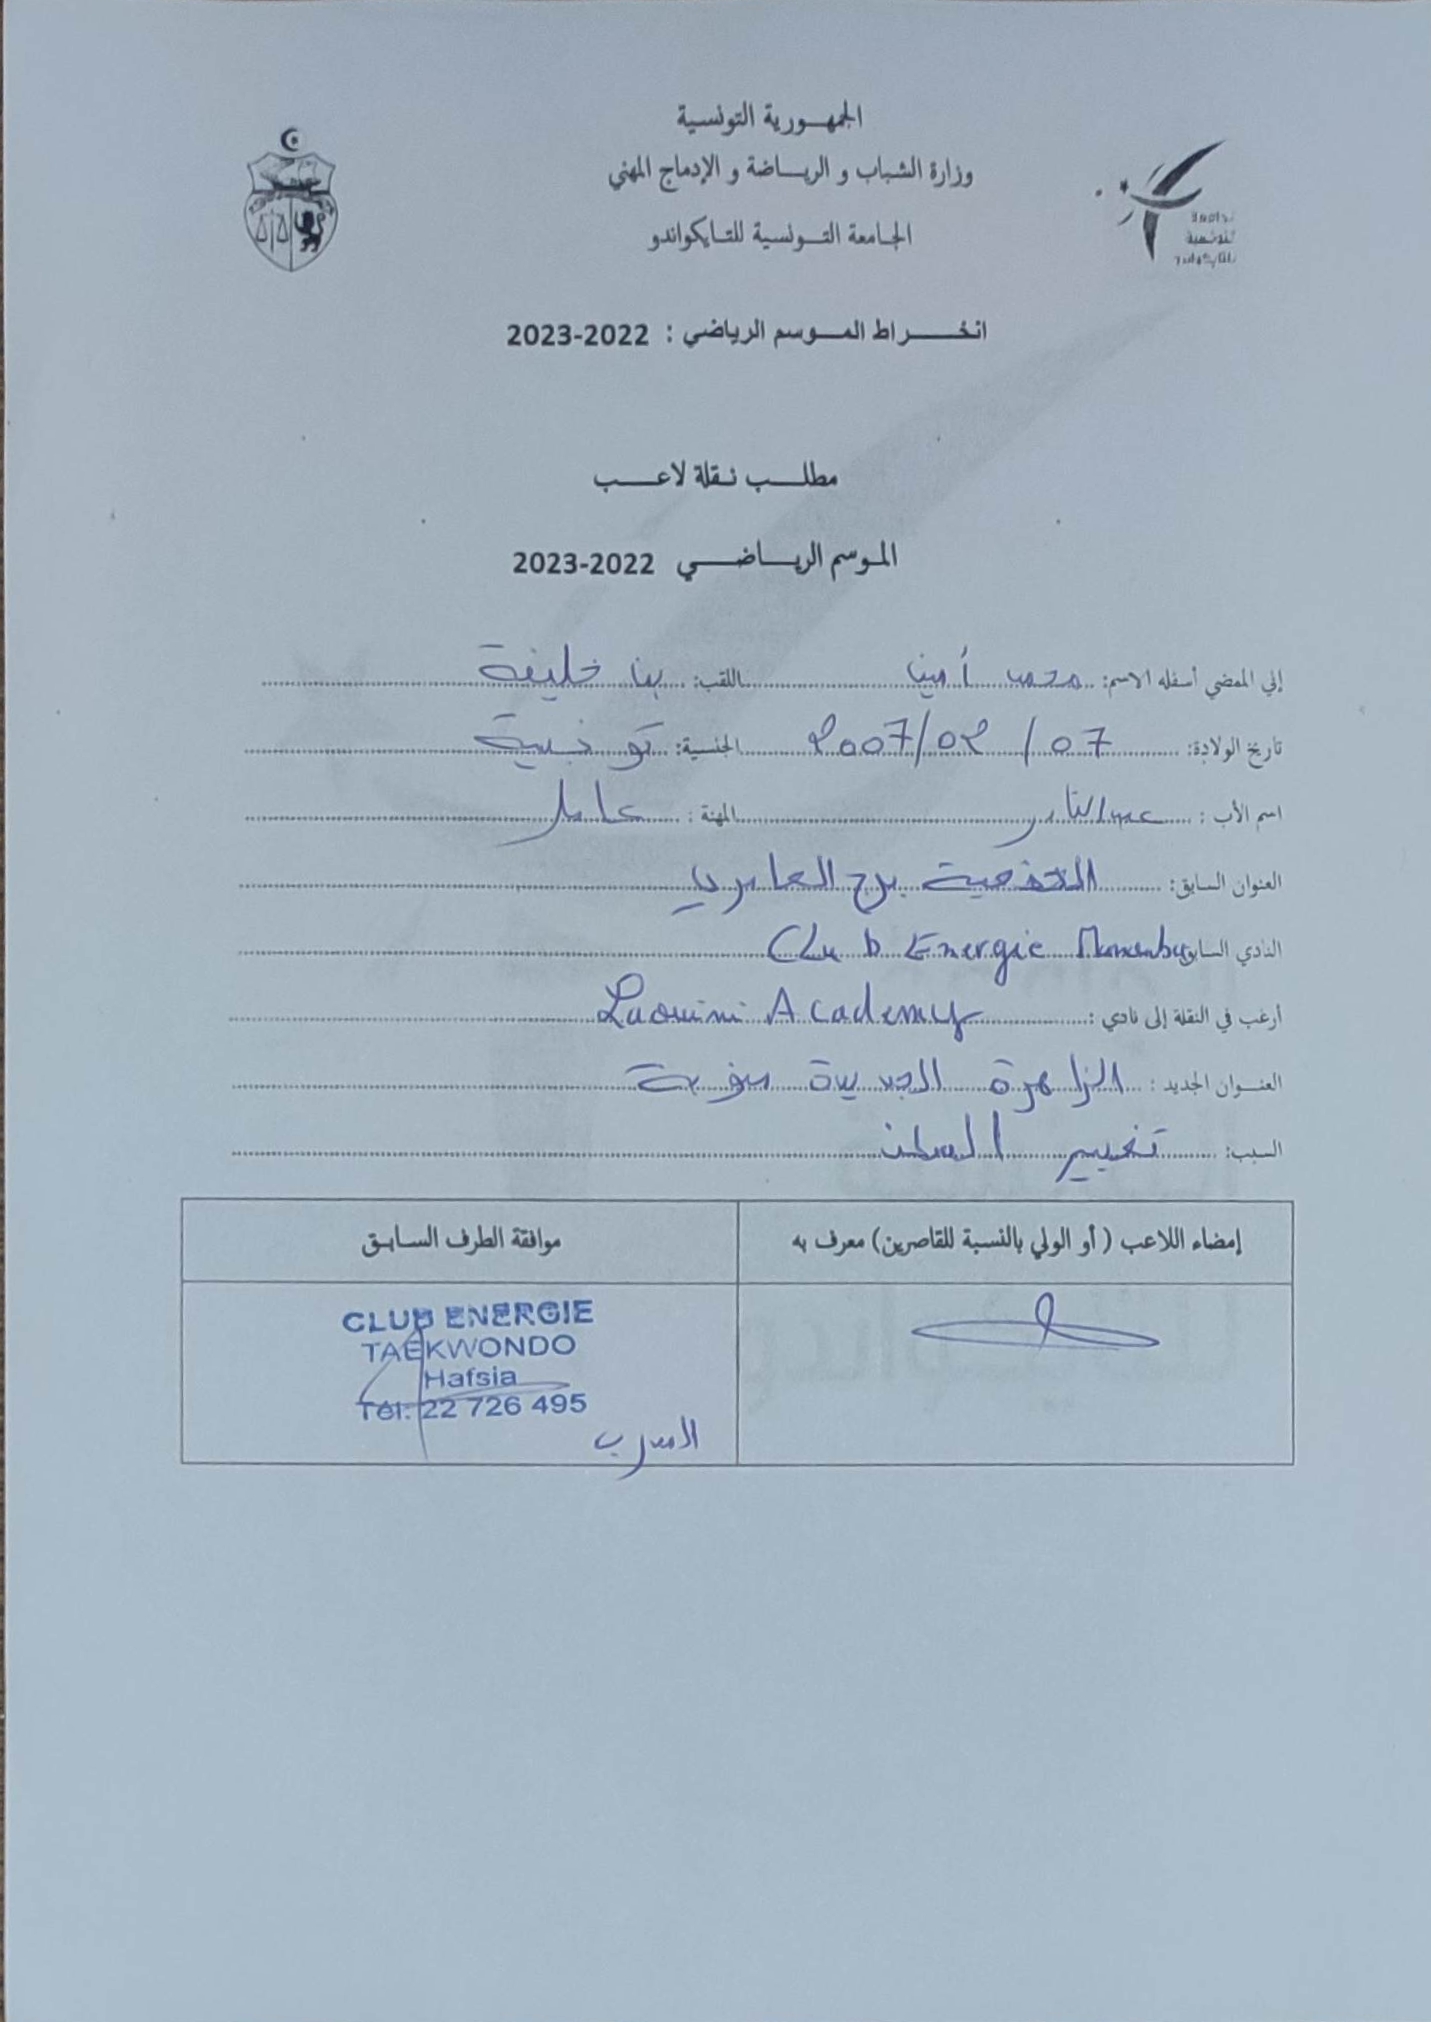 الجمهورية التونسية
وزارة الشباب و الرياضة و الإدماج المهني
الجامعة التونسية للتايكواندو
انخراط الموسم الرياضي : 2022-2023
مطلب نقلة لاعب
الموسم الرياضي 2022-2023
إني الممضي أسفله الاسم: محمد أمين اللقب: بن خليفة
تاريخ الولادة: 07 / 02 / 2007 الجنسية: تونسية
اسم الأب : المهنة : عامل
العنوان السابق: برج العامري
النادي السابق Club Energie
أرغب في النقلة إلى نادي : Laouini Academy
العنوان الجديد : الزاهرة الجديدة
السبب: تغيير السكن
إمضاء اللاعب ( أو الولي بالنسبة للقاصرين) معرف به
موافقة الطرف السابق
CLUB ENERGIE
TAEKWONDO
Hafsia
Tél: 22 726 495
المدرب